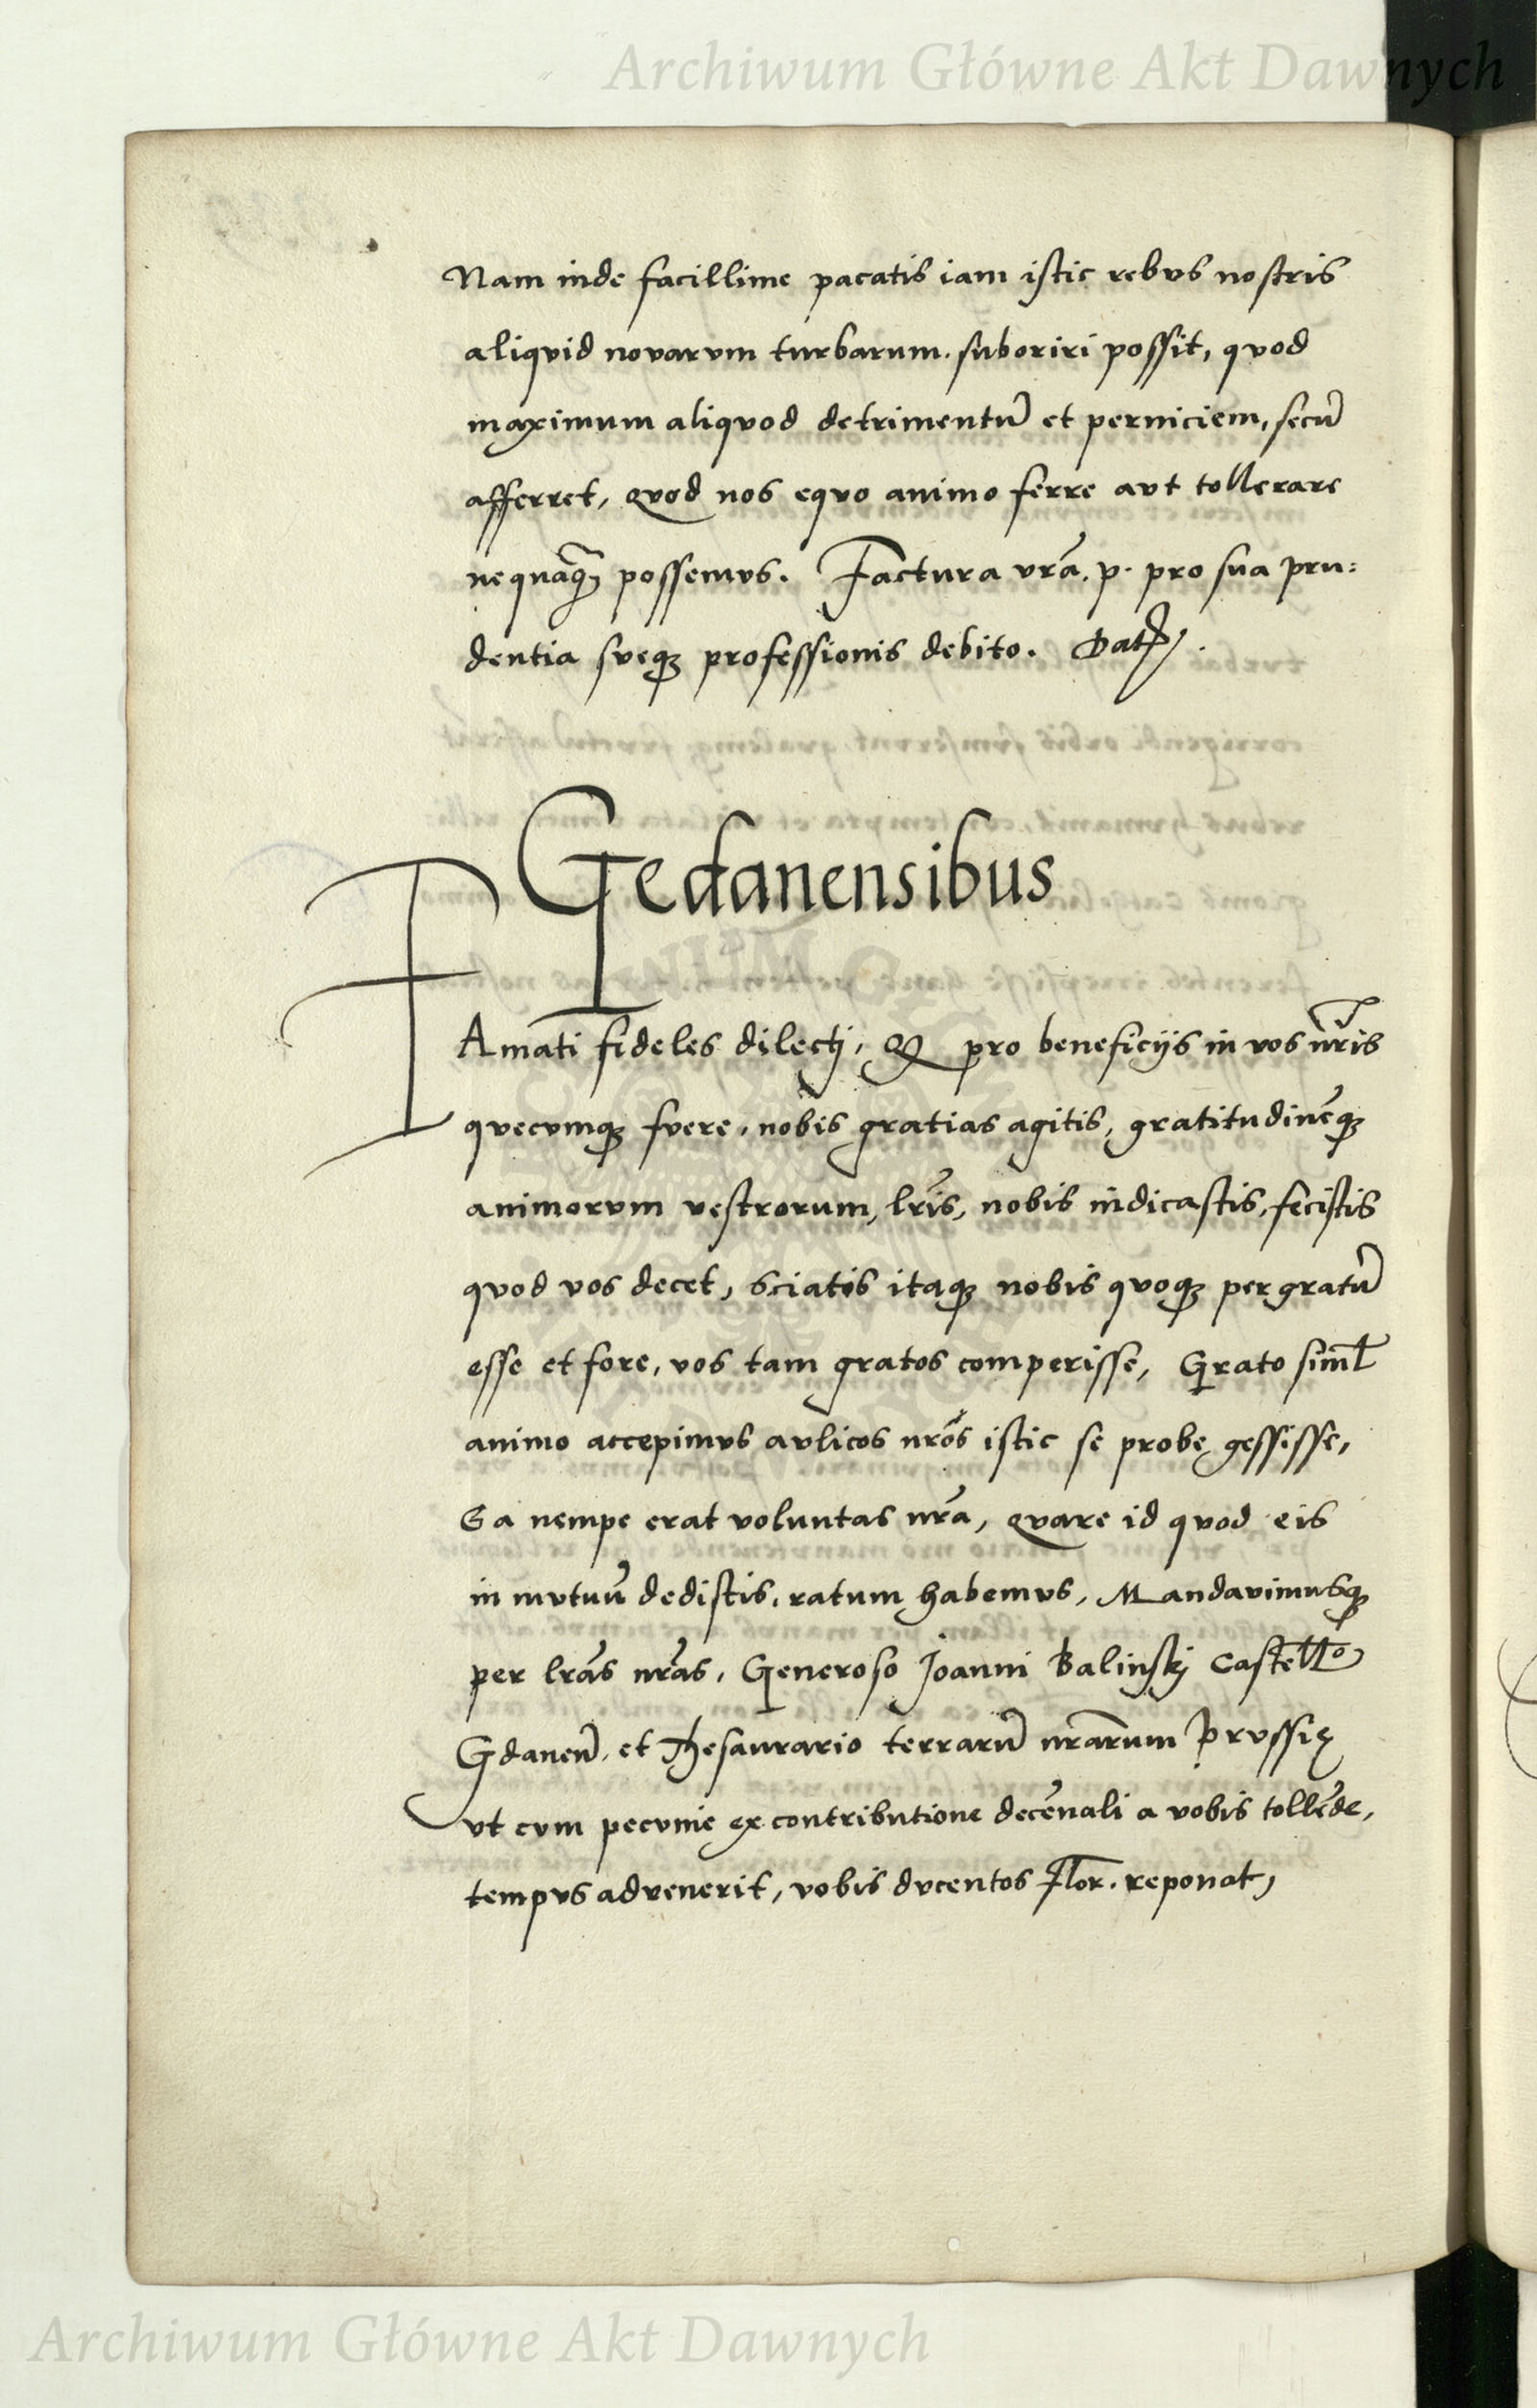 Archiwum Główne Akt Dawnych
Nam inde facillime pacatis iam istic rebus nostris
aliquid novarum turbarum. suboriri possit, quod
maximum aliquod detrimentũ et perniciem, secũ
afferret, quod nos equo animo ferre aut tollerare
nequaq̃ possemus. Factura vrã. p. pro sua pru:
dentia sueq; professionis debito. Dat.
Gedanensibus
Amati fideles dilecti, Q pro beneficijs in vos nr̃is
quecumq; fuere, nobis gratias agitis, gratitudinẽq;
animorum vestrorum, lrĩs, nobis indicastis, fecistis
quod vos decet, Sciatis itaq; nobis quoq; pergratũ
esse et fore, vos tam gratos comperisse, Grato siml̃
animo accepimus aulicos nrõs istic se probe gessisse,
Ea nempe erat voluntas nrã, quare id quod eis
in mutuũ dedistis, ratum habemus, Mandavimusq;
per lrãs nrãs, Generoso Joanni Balinskj Castellõ
Gdaneñ. et Thesaurario terrarũ nrãrum Prussię
ut cum pecunie ex contributione decẽnali a vobis tollẽde,
tempus advenerit, vobis ducentos flor. reponat,
Archiwum Główne Akt Dawnych